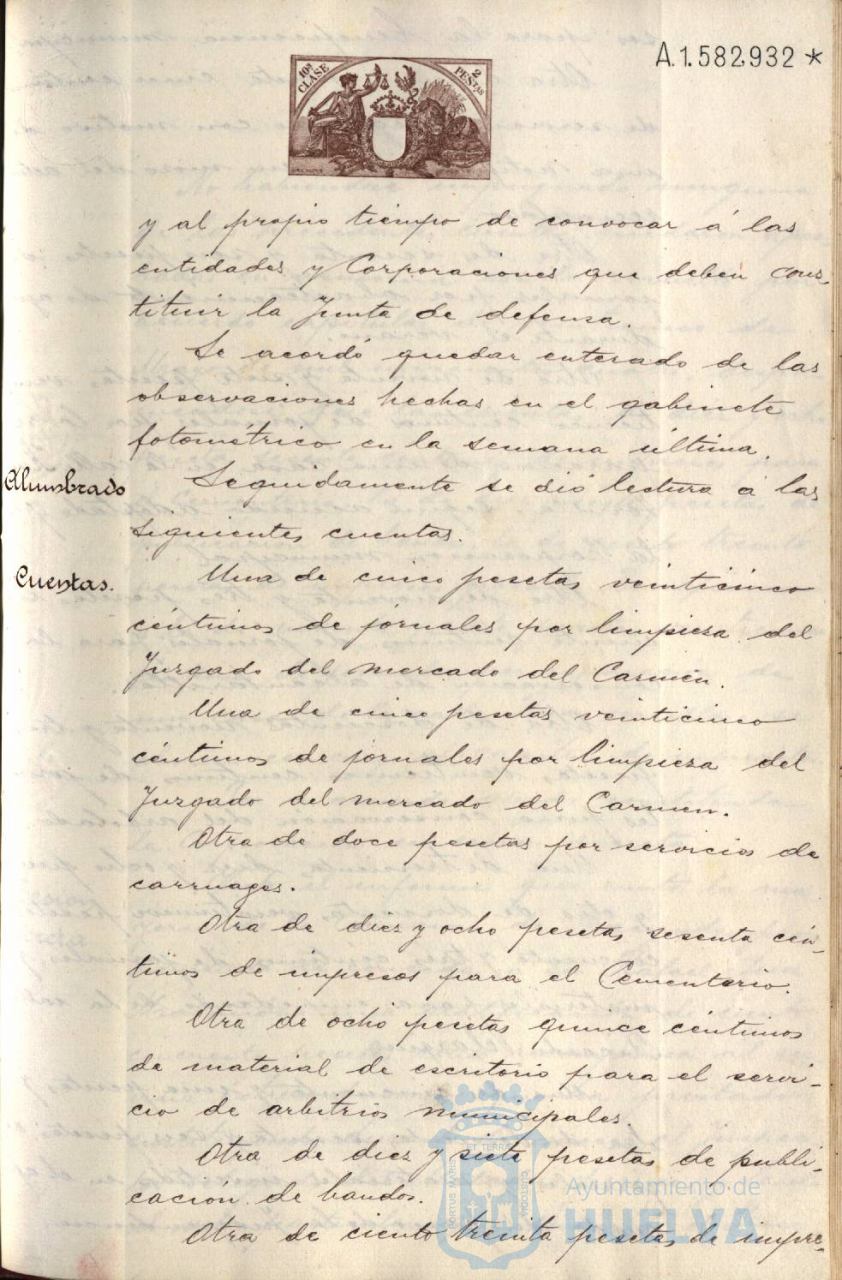 A.1.582,932 *
10ª CLASE
2 PESETAS
y al propio tiempo de convocar á las
entidades y Corporaciones que deben cons-
tituir la Junta de defensa.
Se acordó quedar enterado de las
observaciones hechas en el gabinete
fotométrico en la semana última.
Alumbrado
Seguidamente se dió lectura á las
siguientes cuentas.
Cuentas.
Una de cinco pesetas veinticinco
céntimos de jornales por limpieza del
Juzgado del mercado del Carmen.
Una de cinco pesetas veinticinco
céntimos de jornales por limpieza del
Juzgado del mercado del Carmen.
Otra de doce pesetas por servicios de
carruages.
Otra de diez y ocho pesetas sesenta cén-
timos de impresos para el Cementerio.
Otra de ocho pesetas quince céntimos
de material de escritorio para el servi-
cio de arbitrios municipales.
Otra de diez y siete pesetas de publi-
cación de bandos.
Otra de ciento treinta pesetas de impre-
PORTUS MARIS
ET TERRE
CUSTODIA
Ayuntamiento de
HUELVA